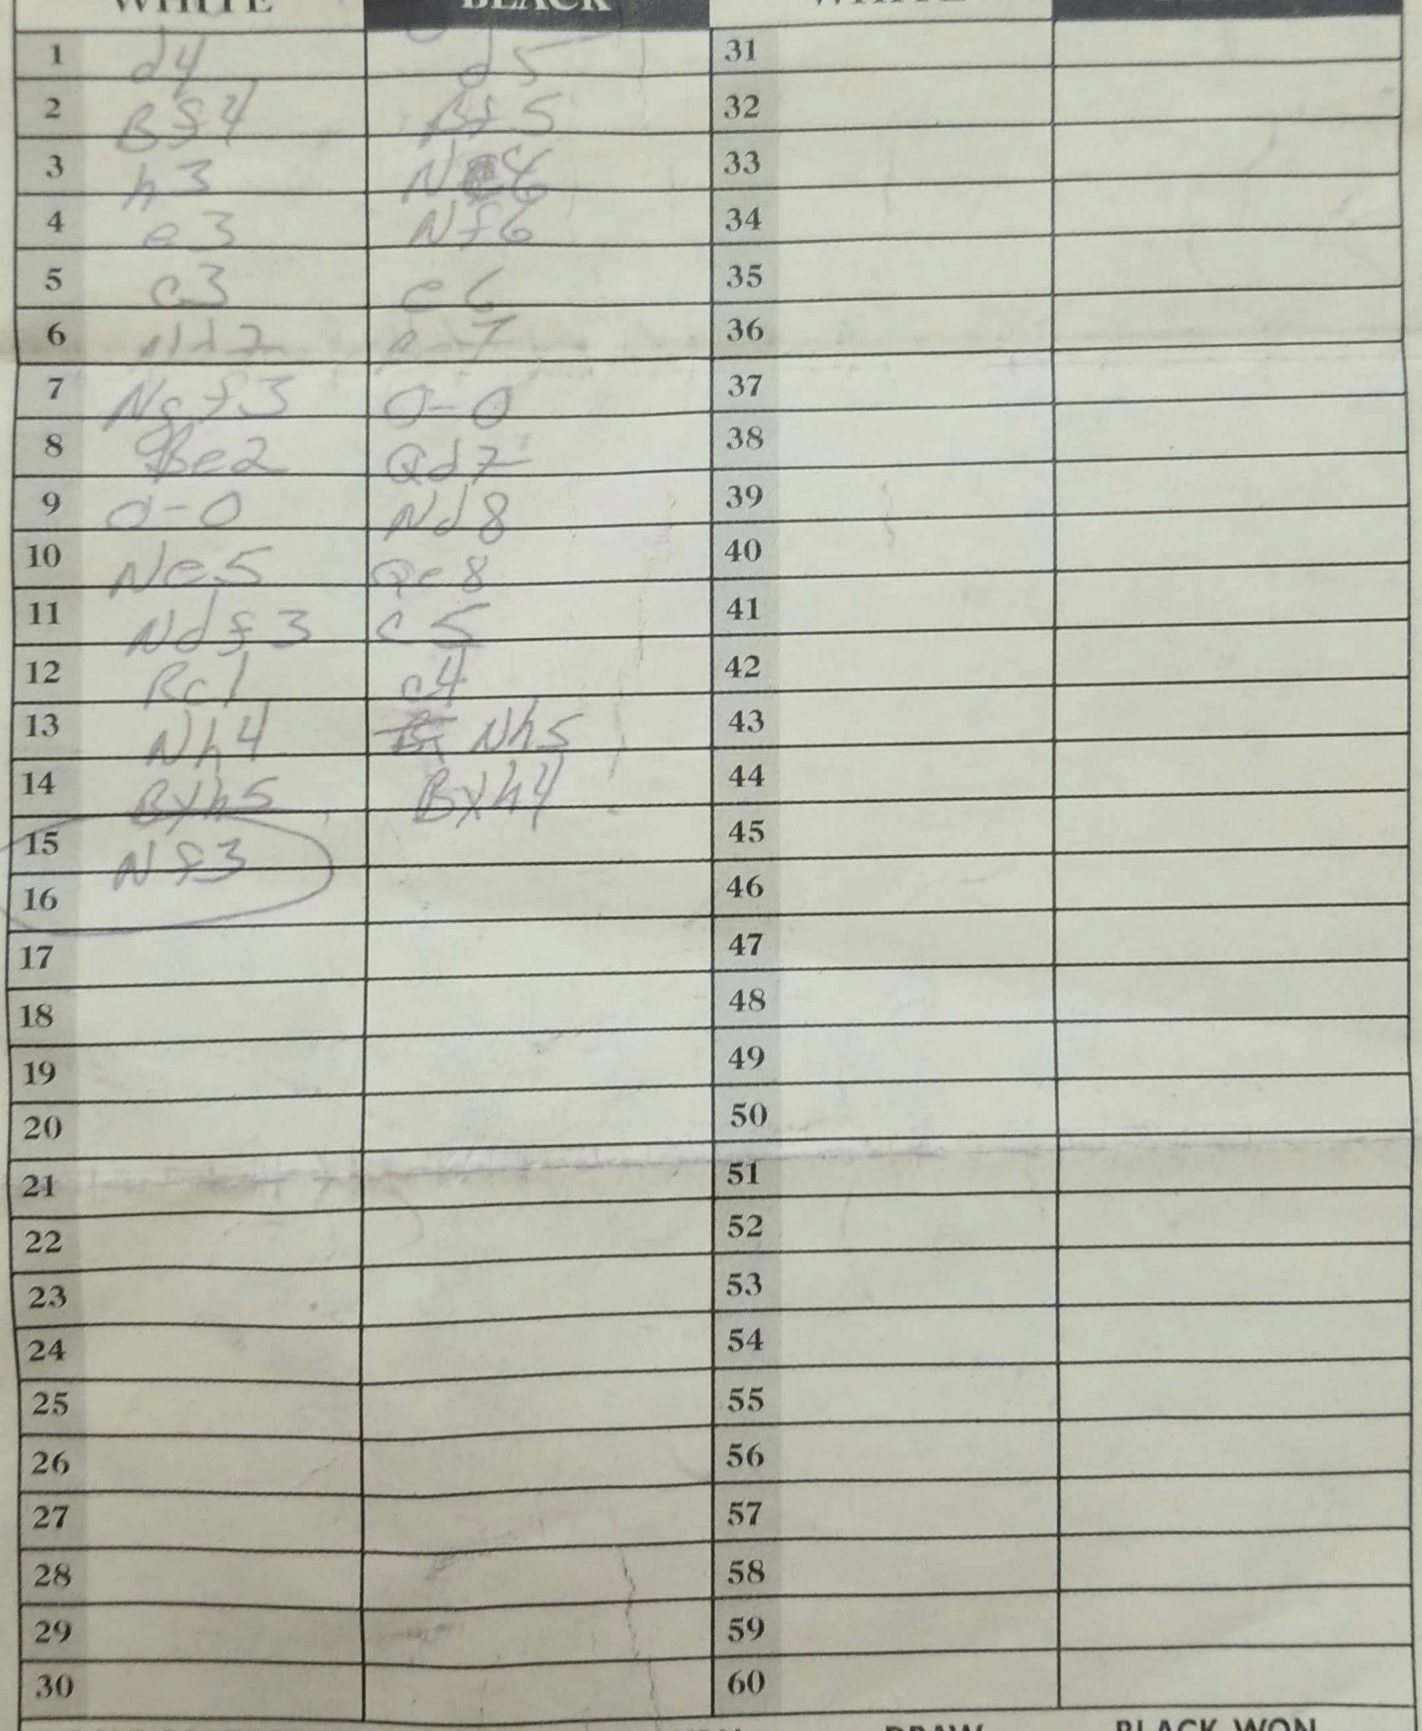 WHITE BLACK WHITE
1 d4 d5 31
2 Bf4 Bf5 32
3 h3 Nc6 33
4 e3 Nf6 34
5 c3 e6 35
6 Nd2 36
7 Ngf3 0-0 37
8 Be2 Qd7 38
9 0-0 Nd8 39
10 Ne5 Qe8 40
11 Ndf3 c5 41
12 Rc1 c4 42
13 Nh4 Nh5 43
14 Bxh5 Bxh4 44
15 Nf3 45
16 46
17 47
18 48
19 49
20 50
21 51
22 52
23 53
24 54
25 55
26 56
27 57
28 58
29 59
30 60
DRAW BLACK WON